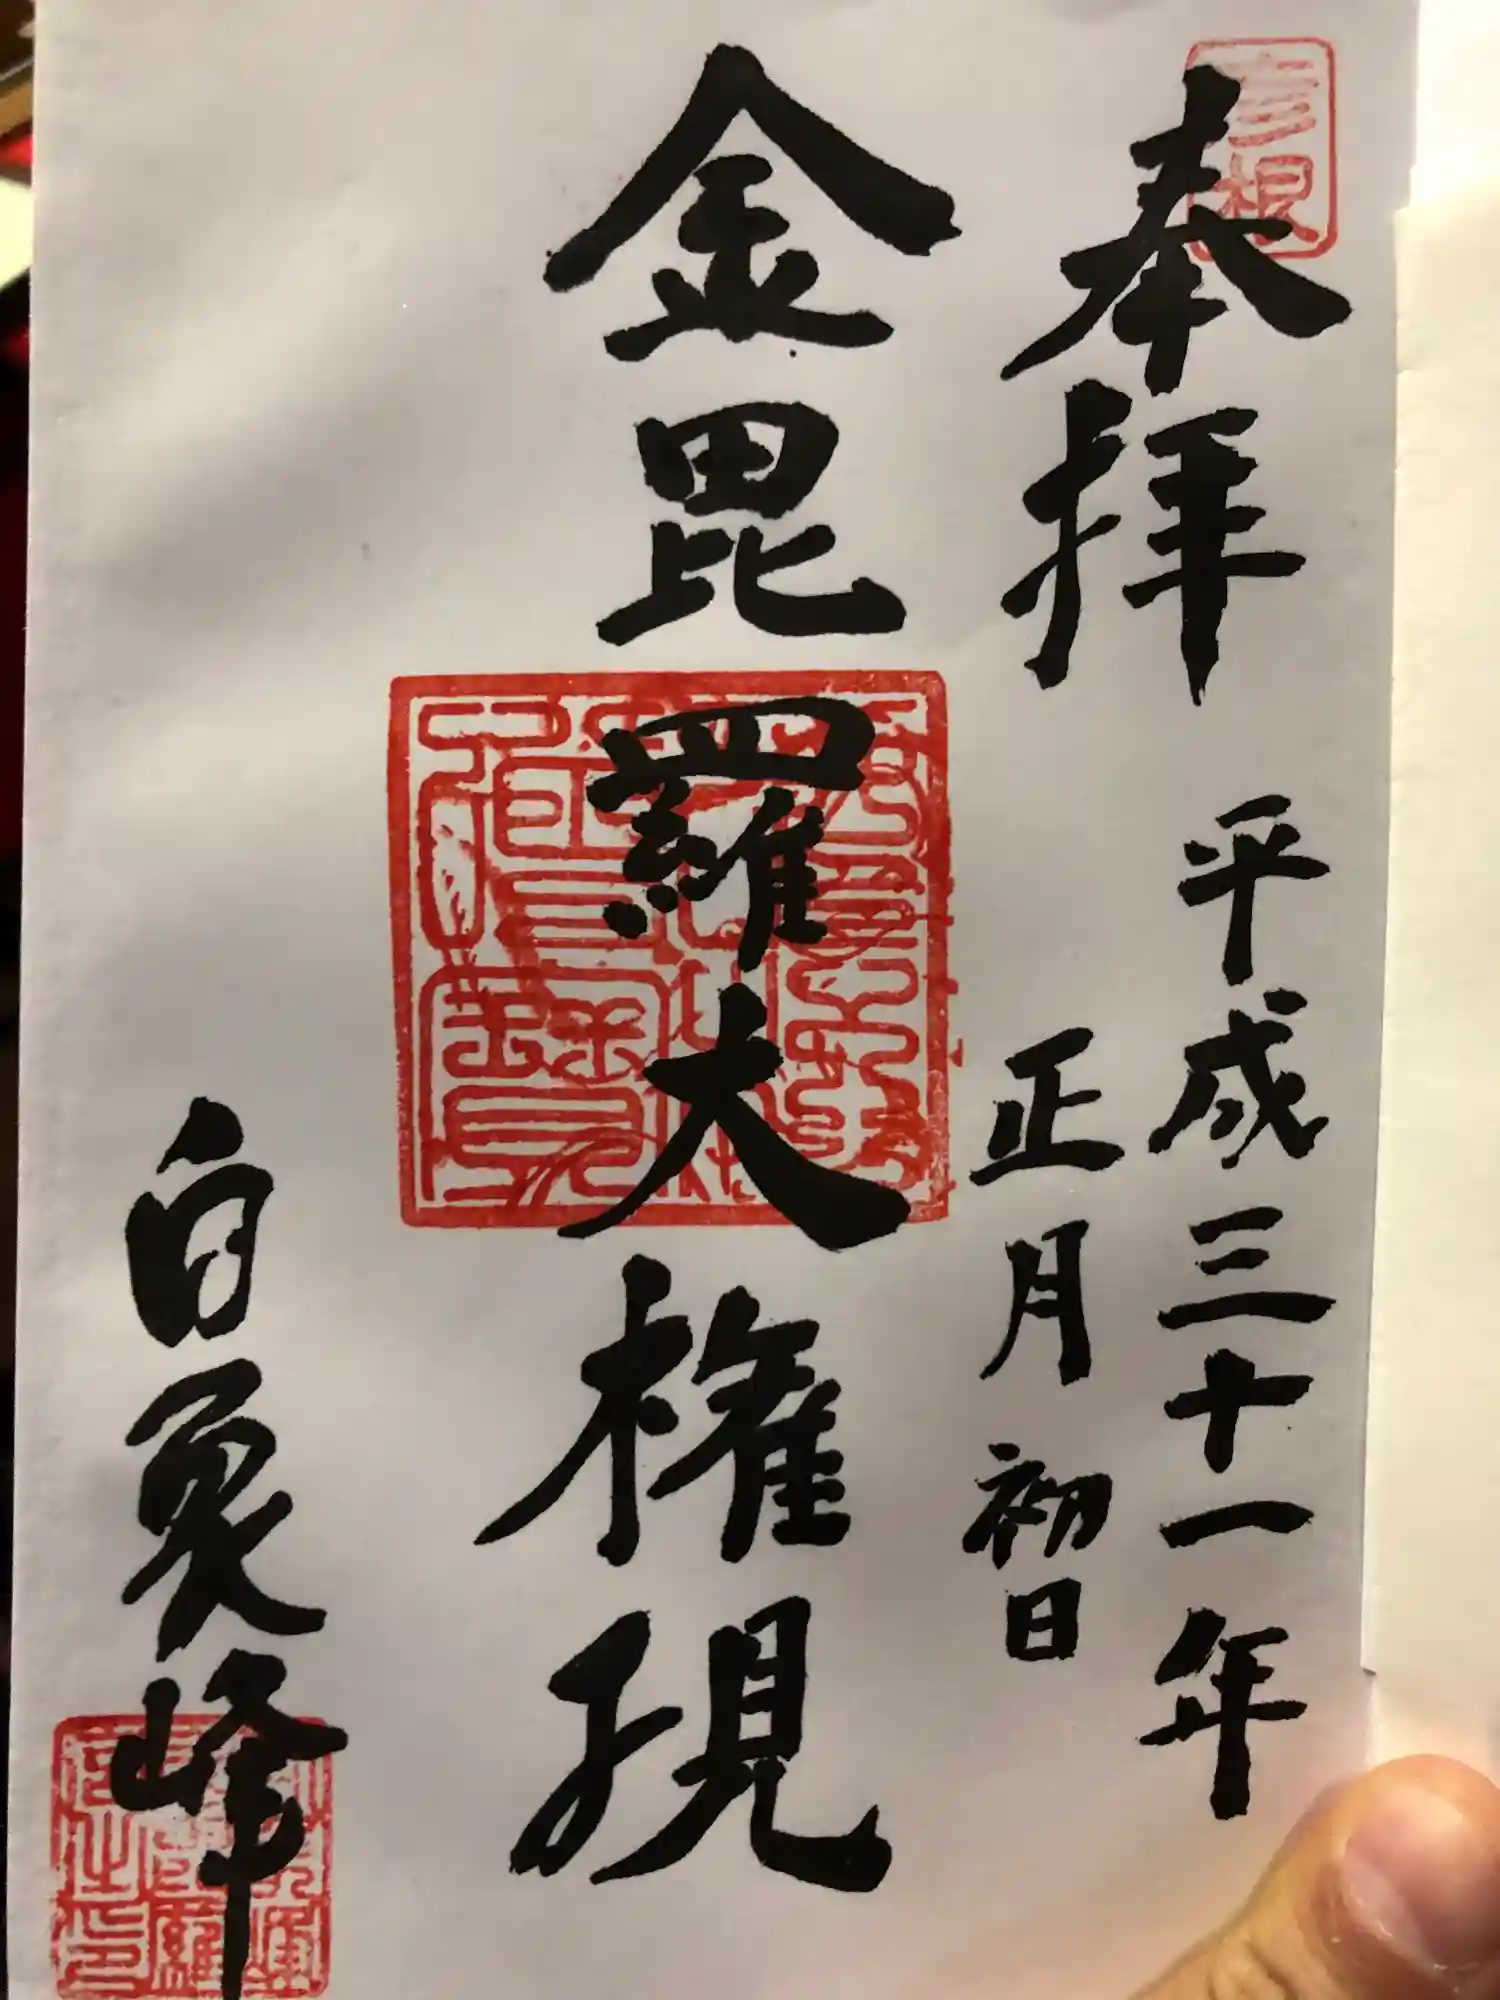 奉拝
平成三十一年
正月初日
金毘羅大権現
白象峰
彦根